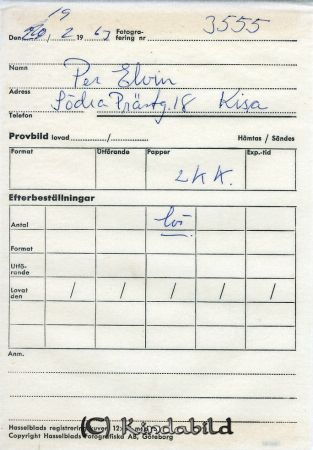 19
Den 2 19 67 Fotogra-
fering nr 3555
Namn Per Elvin
Adress Södra Prästg. 18 Kisa
Telefon
Provbild lovad Hämtas / Sändes
Format Utförande Papper Exp.-tid
2 K K.
Efterbeställningar
Antal
Format
Utfö-
rande
Lovat
den / / / / /
Anm.
Hasselblads registrering
(C) Kindabild
Copyright Hasselblads Fotografiska AB, Göteborg